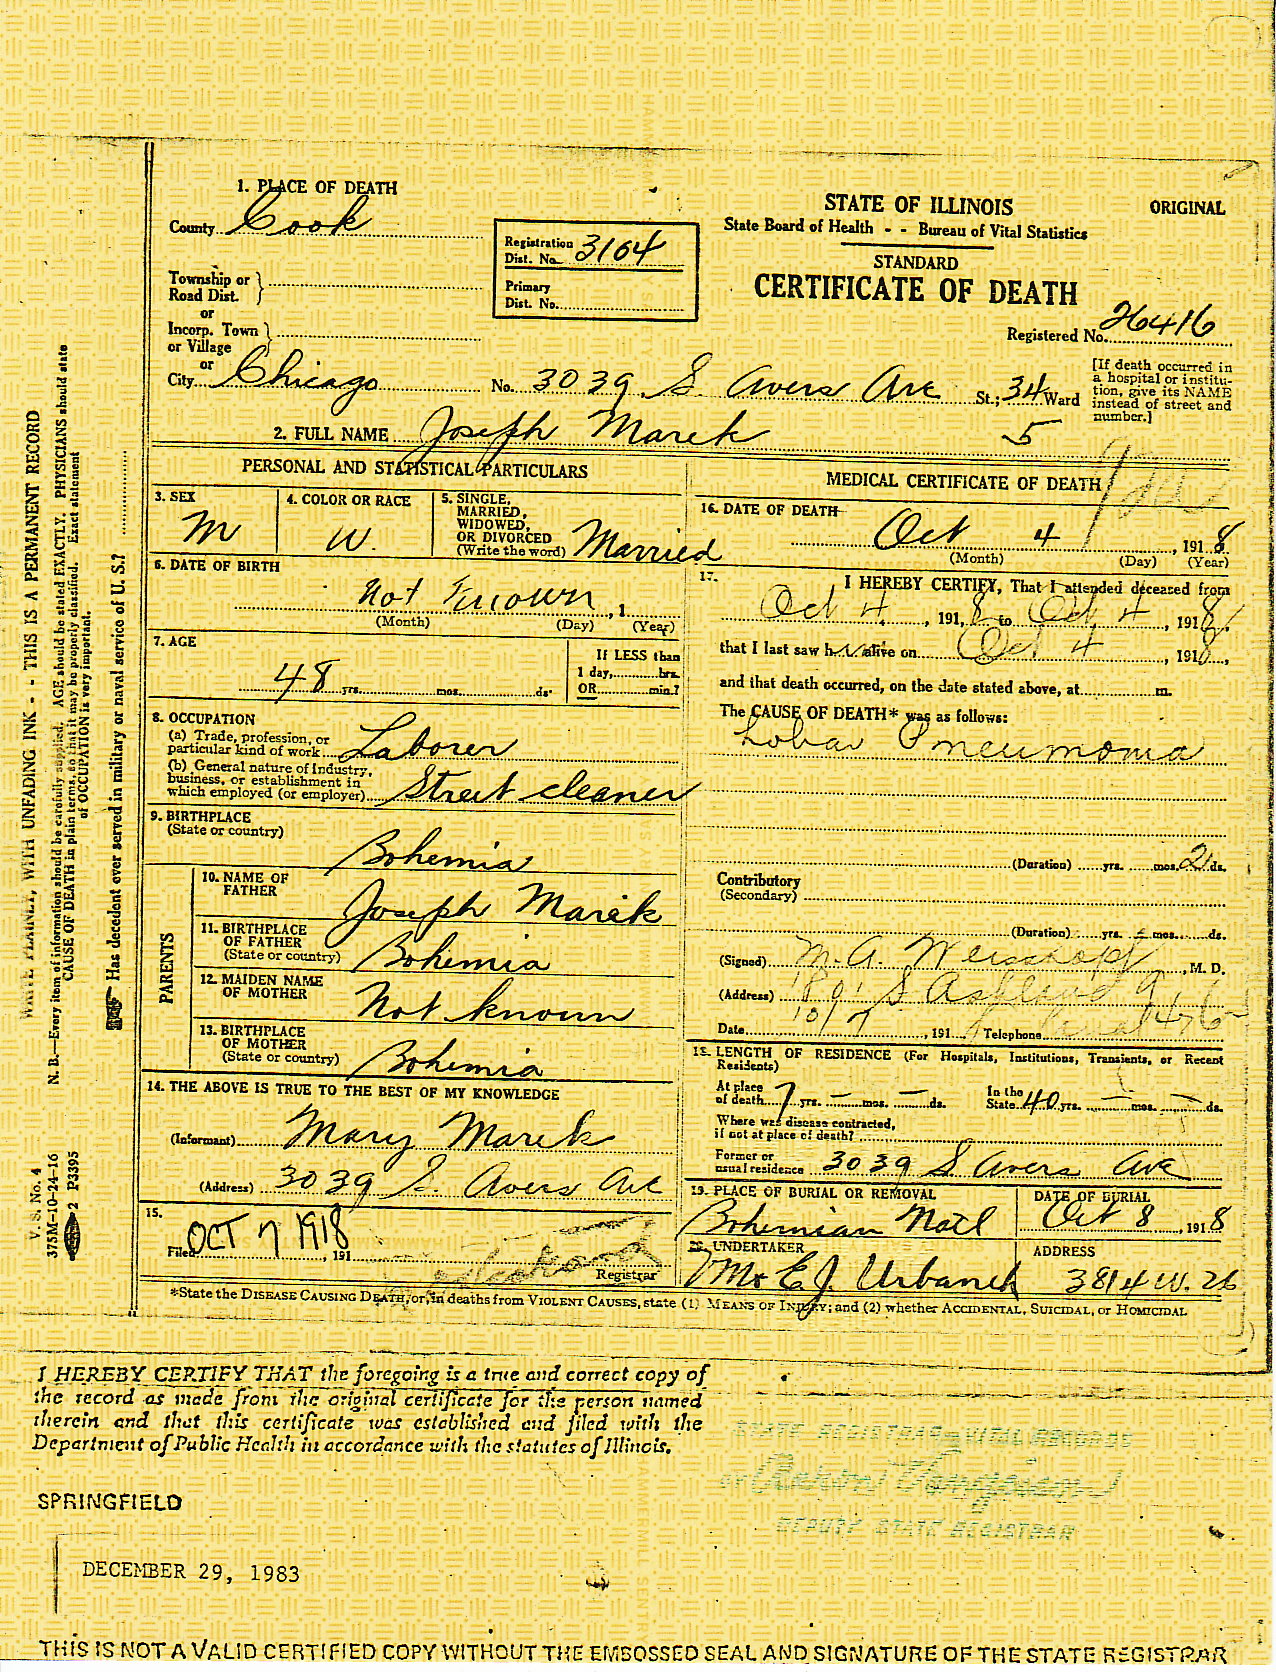 1. PLACE OF DEATH
County Cook
Registration
Dist. No. 3104
Primary
Dist. No.
Township or
Road Dist.
or
Incorp. Town
or Village
or
City Chicago No. 3039 S Avers Ave St.; 34 Ward
STATE OF ILLINOIS
State Board of Health - - Bureau of Vital Statistics
ORIGINAL
STANDARD
CERTIFICATE OF DEATH
Registered No. 26416
[If death occurred in
a hospital or institu-
tion, give its NAME
instead of street and
number.]
2. FULL NAME Joseph Marek
5
PERSONAL AND STATISTICAL PARTICULARS
3. SEX
M
4. COLOR OR RACE
W.
5. SINGLE,
MARRIED,
WIDOWED,
OR DIVORCED
(Write the word) Married
6. DATE OF BIRTH
Not Known, 1
(Month) (Day) (Year)
7. AGE
48 yrs. mos. ds.
If LESS than
1 day, hrs.
OR min.?
8. OCCUPATION
(a) Trade, profession, or
particular kind of work Laborer
(b) General nature of Industry,
business, or establishment in
which employed (or employer) Street cleaner
9. BIRTHPLACE
(State or country)
Bohemia
PARENTS
10. NAME OF
FATHER
Joseph Marek
11. BIRTHPLACE
OF FATHER
(State or country) Bohemia
12. MAIDEN NAME
OF MOTHER
Not known
13. BIRTHPLACE
OF MOTHER
(State or country) Bohemia
14. THE ABOVE IS TRUE TO THE BEST OF MY KNOWLEDGE
(Informant) Mary Marek
(Address) 3039 S. Avers Ave
15.
Filed OCT 7 1918, 191
Registrar
MEDICAL CERTIFICATE OF DEATH
16. DATE OF DEATH
Oct 4, 1918
(Month) (Day) (Year)
17. I HEREBY CERTIFY, That I attended deceased from
Oct 4, 1918, to Oct 4, 1918,
that I last saw him alive on Oct 4, 1918,
and that death occurred, on the date stated above, at m.
The CAUSE OF DEATH* was as follows:
Lobar Pneumonia
(Duration) yrs. mos. 2 ds.
Contributory
(Secondary)
(Duration) yrs. mos. ds.
(Signed) M. A. Weisskopf, M. D.
(Address) 1801 S Ashland
Date 10/7, 191 Telephone Canal 476
18. LENGTH OF RESIDENCE (For Hospitals, Institutions, Transients, or Recent
Residents)
At place
of death 7 yrs. — mos. — ds.
In the
State 40 yrs. — mos. — ds.
Where was disease contracted,
if not at place of death?
Former or
usual residence 3039 S Avers Ave
19. PLACE OF BURIAL OR REMOVAL
Bohemian Natl
DATE OF BURIAL
Oct 8, 1918
20. UNDERTAKER
Mr E. J. Urbanek
ADDRESS
3814 W. 26
*State the DISEASE CAUSING DEATH, or, in deaths from VIOLENT CAUSES, state (1) MEANS OF INJURY; and (2) whether ACCIDENTAL, SUICIDAL, or HOMICIDAL
WRITE PLAINLY, WITH UNFADING INK - - THIS IS A PERMANENT RECORD
N. B.—Every item of information should be carefully supplied. AGE should be stated EXACTLY. PHYSICIANS should state
CAUSE OF DEATH in plain terms, so that it may be properly classified. Exact statement
of OCCUPATION is very important.
Has decedent ever served in military or naval service of U. S.?
V. S. No. 4
375M-10-24-16
2 P3395
I HEREBY CERTIFY THAT the foregoing is a true and correct copy of
the record as made from the original certificate for the person named
therein and that this certificate was established and filed with the
Department of Public Health in accordance with the statutes of Illinois.
SPRINGFIELD
STATE REGISTRAR—VITAL RECORDS
DEPUTY STATE REGISTRAR
DECEMBER 29, 1983
THIS IS NOT A VALID CERTIFIED COPY WITHOUT THE EMBOSSED SEAL AND SIGNATURE OF THE STATE REGISTRAR